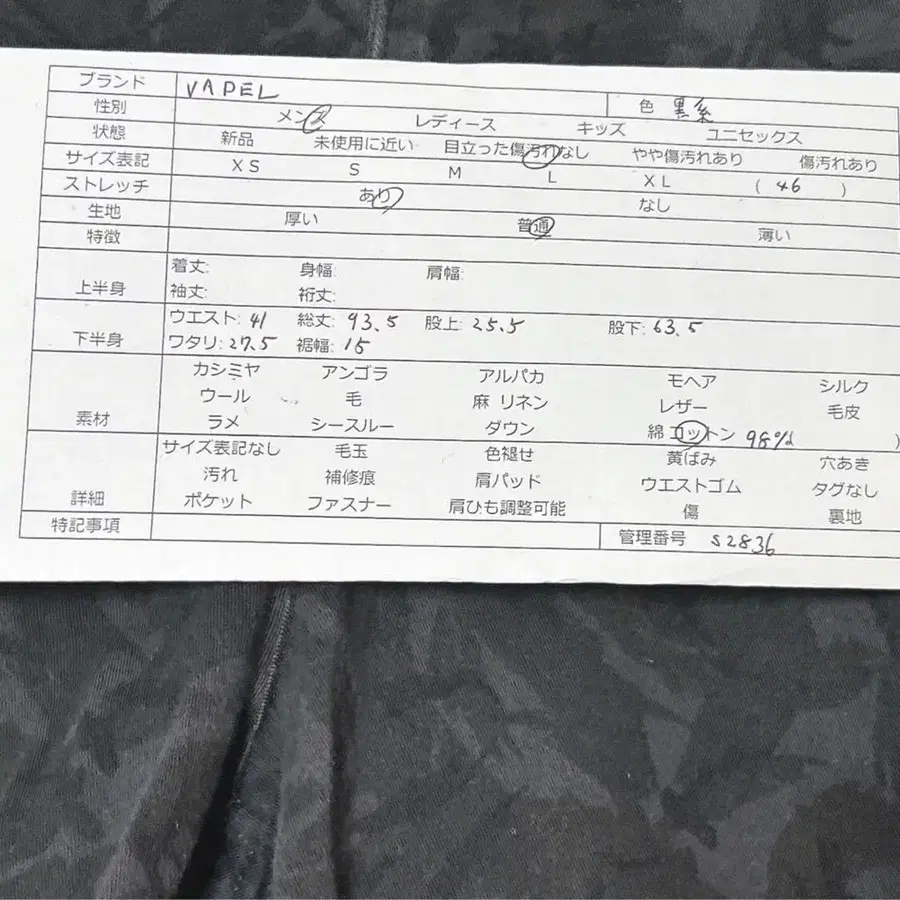 ブランド VAPEL 色 黒系
性別 メンズ レディース キッズ ユニセックス
状態 新品 未使用に近い 目立った傷汚れなし やや傷汚れあり 傷汚れあり
サイズ表記 XS S M L XL ( 46 )
ストレッチ あり なし
生地 厚い 普通 薄い
特徴
上半身 着丈: 身幅: 肩幅:
袖丈: 裄丈:
下半身 ウエスト: 41 総丈: 93.5 股上: 25.5 股下: 63.5
ワタリ: 27.5 裾幅: 15
素材 カシミヤ アンゴラ アルパカ モヘア シルク
ウール 毛 麻 リネン レザー 毛皮
ラメ シースルー ダウン 綿 コットン 98% )
詳細 サイズ表記なし 毛玉 色褪せ 黄ばみ 穴あき
汚れ 補修痕 肩パッド ウエストゴム タグなし
ポケット ファスナー 肩ひも調整可能 傷 裏地
特記事項 管理番号 S2836